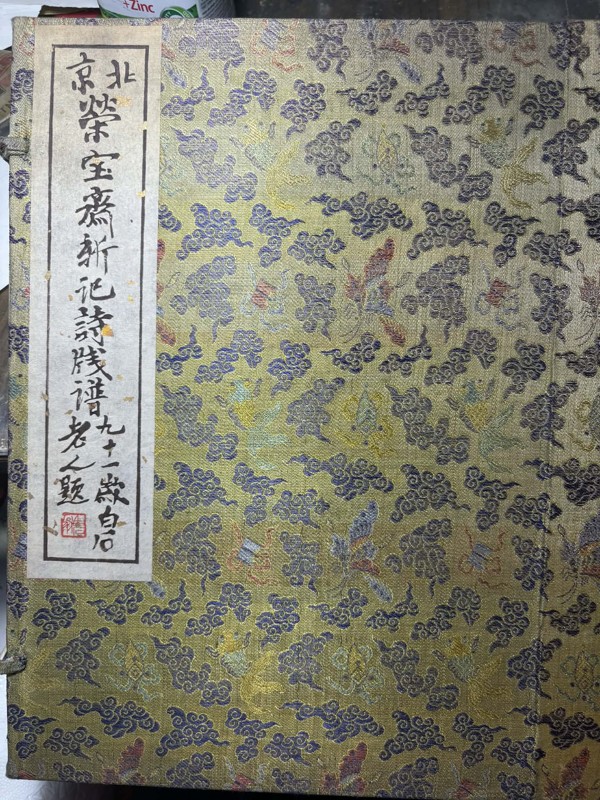 +Zinc
北京
榮宝齋新记詩牋谱
九十一歲白石
老人題